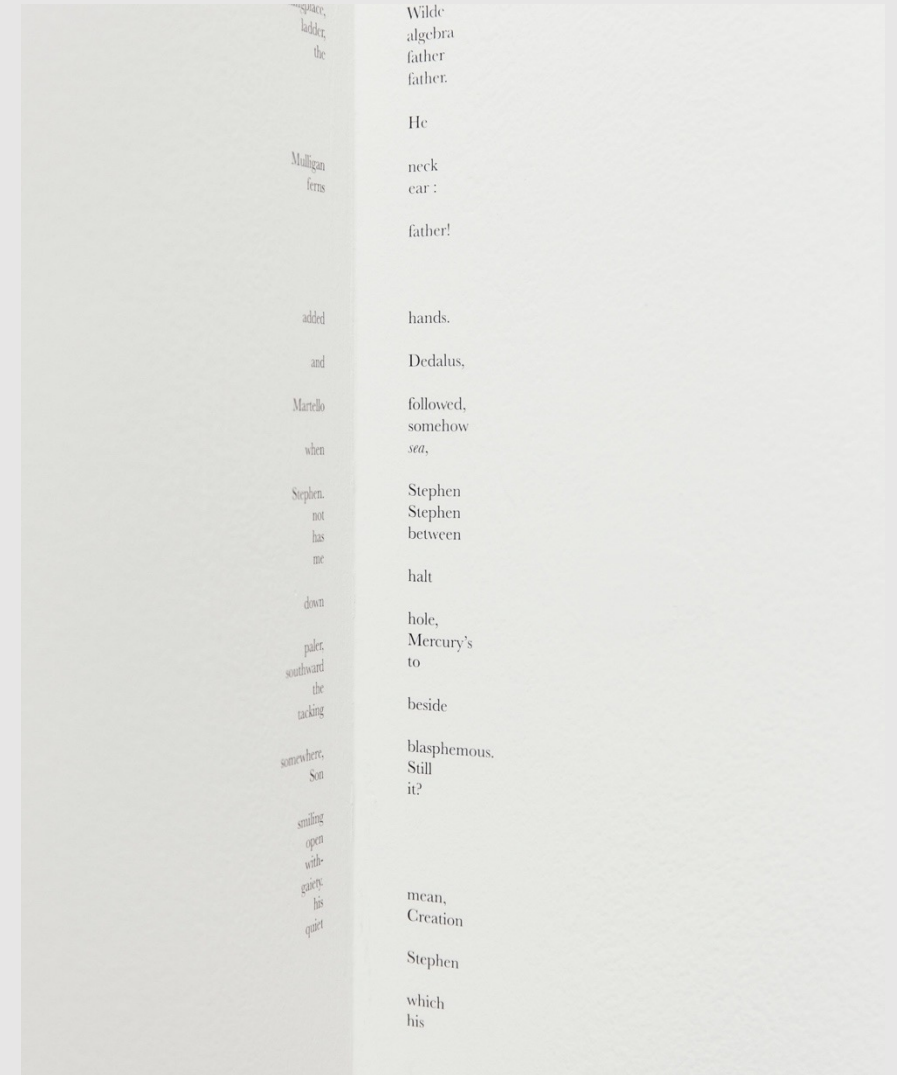 ladder,
the
Mulligan
ferns
added
and
Martello
when
Stephen.
not
has
me
down
paler,
southward
the
tacking
somewhere,
Son
smiling
open
with-
gaiety.
his
quiet
Wilde
algebra
father
father.
He
neck
ear :
father!
hands.
Dedalus,
followed,
somehow
sea,
Stephen
Stephen
between
halt
hole,
Mercury’s
to
beside
blasphemous.
Still
it?
mean,
Creation
Stephen
which
his